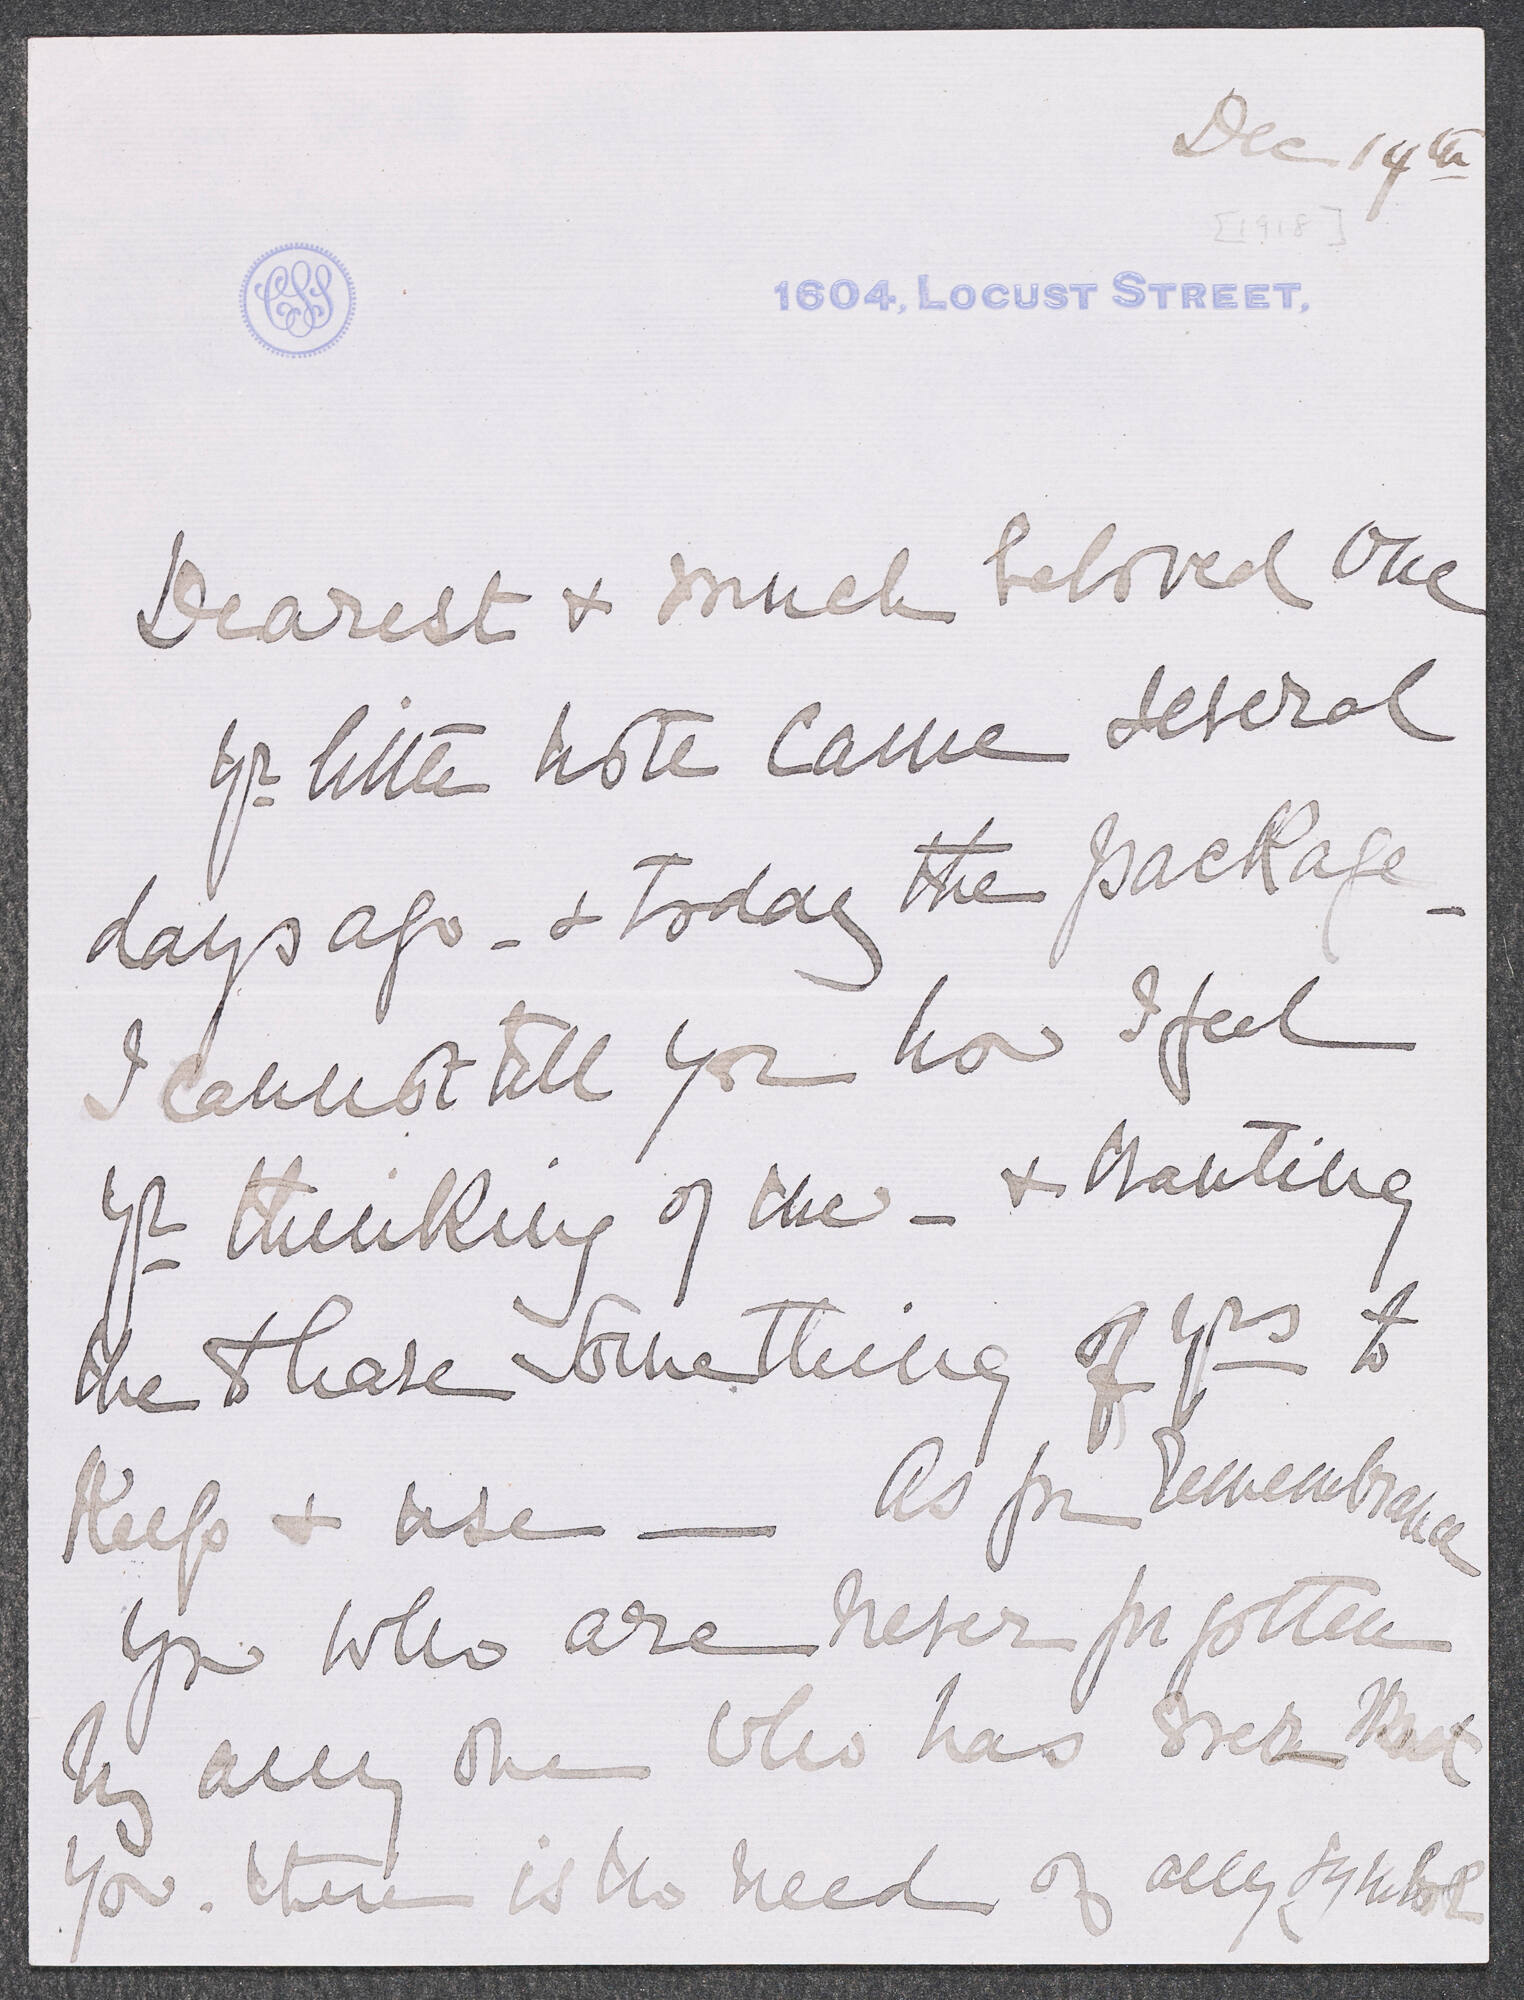 Dec 14th
[1918]
CSS
1604, LOCUST STREET.
Dearest & much beloved one
yr little note came several
days ago - & today the package -
I cannot tell you how I feel
yr thinking of me - & wanting
me to have something of yrs to
keep & use — As for remembrance
you who are never forgotten
by any one who has ever met
you. there is no need of any symbol